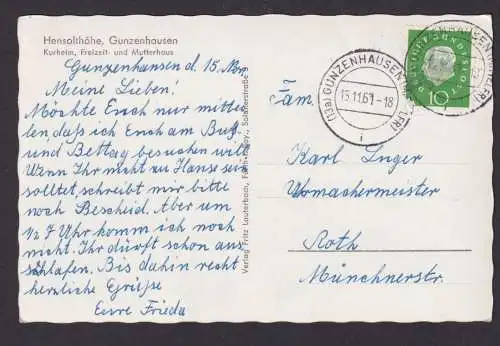 Hensolthöhe, Gunzenhausen
Kurheim, Freizeit- und Mutterhaus
Gunzenhausen d. 15. Nov.
Meine Lieben!
Möchte Euch nur mittei-
len, daß ich Euch am Buß-
und Bettag besuchen will.
Wenn Ihr nicht zu Hans sein
solltet, schreibt mir bitte
noch Bescheid. Aber um
1/2 7 Uhr komm ich noch
nicht. Ihr dürft schon aus-
schlafen. Bis dahin recht
herzliche Grüße
Eure Frieda
Verlag Fritz Lauterbach, Fürth
(13a) GUNZENHAUSEN
15.11.61-18
DEUTSCHE BUNDESPOST
10
Fam.
Karl Unger
Uhrmachermeister
Roth
Münchnerstr.